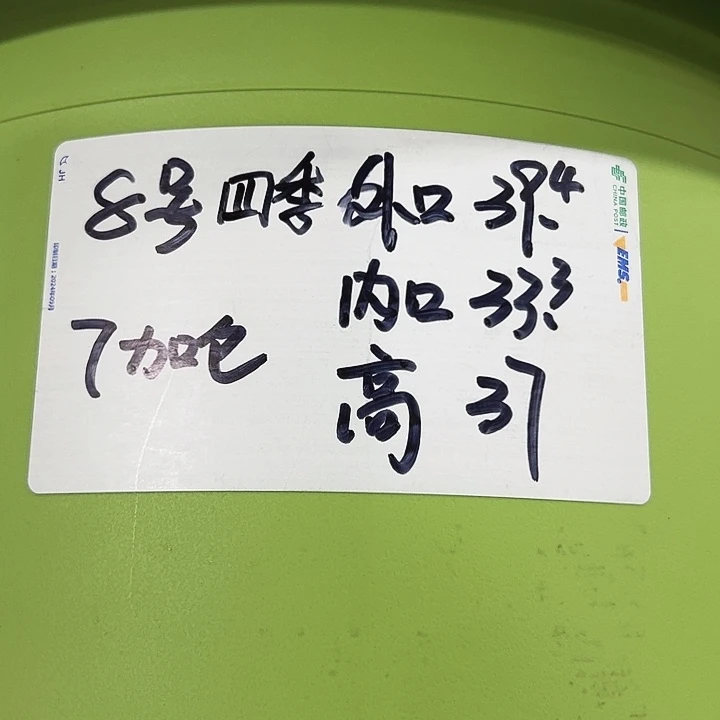 8号 四季 外口 39.4
内口 33.3
7加仑
高 37
中国邮政
CHINA POST
EMS
JH